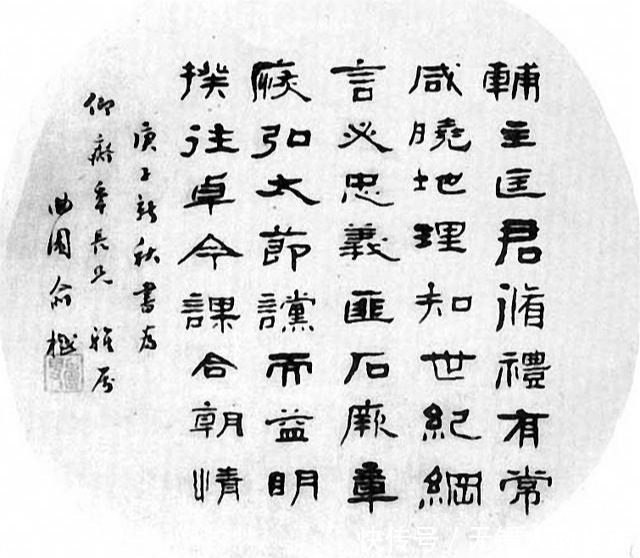 輔主匡君循禮有常
咸曉地理知世紀綱
言必忠義匪石厥章
恢弘大節讜而益明
揆往卓今謀合朝情
庚子新秋書為
仰長兄雅屬
曲園俞樾